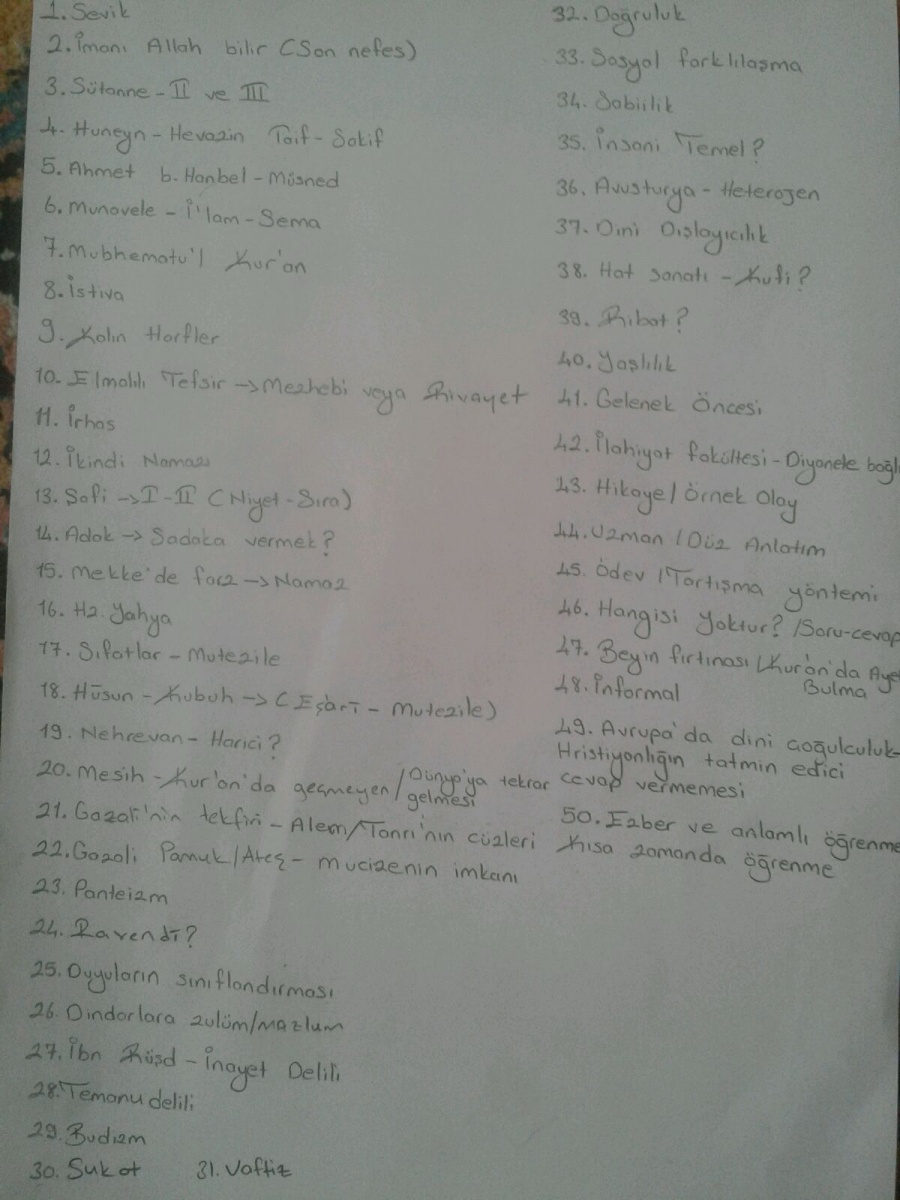 1. Sevik
2. İmanı Allah bilir (Son nefes)
3. Sütanne - II ve III
4. Huneyn - Hevazin Taif - Sakif
5. Ahmet b. Hanbel - Müsned
6. Munavele - İ'lam - Sema
7. Mubhematu'l Kur'an
8. İstiva
9. Kalın Harfler
10. Elmalılı Tefsir → Mezhebi veya Rivayet
11. İrhas
12. İkindi Namazı
13. Şafi → I - II (Niyet - Sıra)
14. Adak → Sadaka vermek?
15. Mekke'de farz → Namaz
16. Hz. Yahya
17. Sıfatlar - Mutezile
18. Hüsun - Kubuh → (Eşari - Mutezile)
19. Nehrevan - Harici?
20. Mesih - Kur'an'da geçmeyen / Dünya'ya tekrar gelmesi
21. Gazali'nin tekfiri - Alem/Tanrı'nın cüzleri
22. Gazali Pamuk/Ateş - mucizenin imkanı
23. Panteizm
24. Ravendi?
25. Duyuların sınıflandırması
26. Dindarlara zulüm/mazlum
27. İbn Rüşd - İnayet Delili
28. Temanu delili
29. Budizm
30. Sukot 31. Vaftiz
32. Doğruluk
33. Sosyal farklılaşma
34. Sabiilik
35. İnsani Temel?
36. Avusturya - Heterojen
37. Dini Dışlayıcılık
38. Hat sanatı - Kufi?
39. Ribat?
40. Yaşlılık
41. Gelenek Öncesi
42. İlahiyat fakültesi - Diyanete bağlı
43. Hikaye / Örnek Olay
44. Uzman / Düz Anlatım
45. Ödev / Tartışma yöntemi
46. Hangisi Yoktur? / Soru-cevap
47. Beyin fırtınası / Kur'an'da Aye
Bulma
48. İnformal
49. Avrupa'da dini çoğulculuk-
Hristiyanlığın tatmin edici
cevap vermemesi
50. Ezber ve anlamlı öğrenme
Kısa zamanda öğrenme